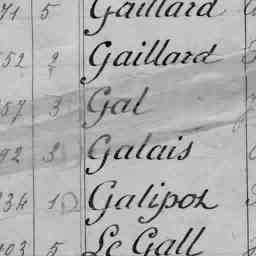 71 5 Gaillard
52 2 Gaillard
57 3 Gal
92 3 Galais
34 1 Galipot
03 5 Le Gall